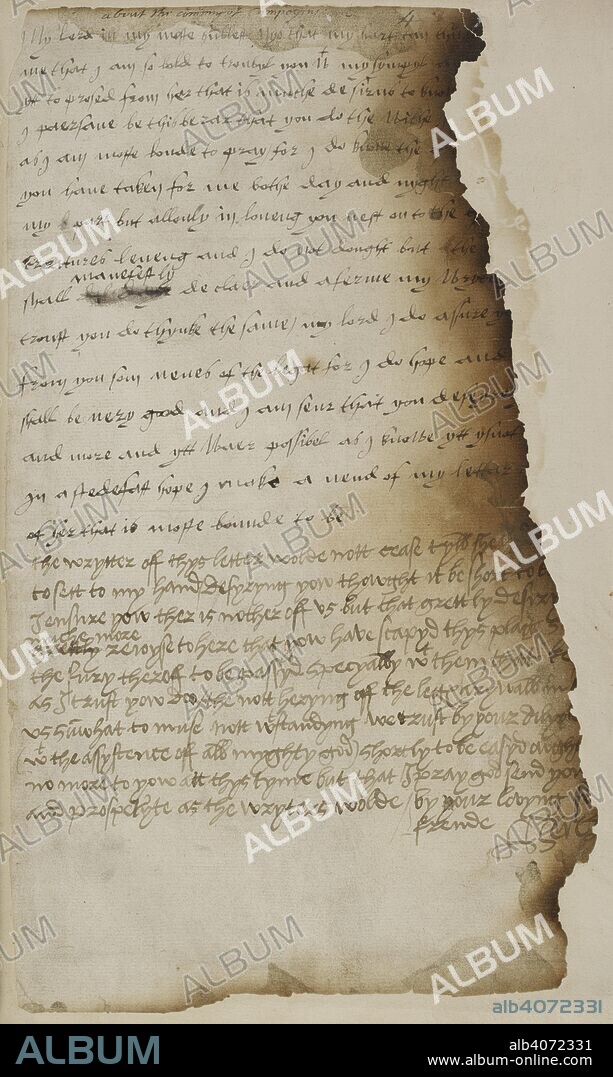 about the
4
My lord in my moste
me that I am so bold to troubyl you wt my sympyl
yt to prosed from her that is muche desirus to know
I parsave be this berar that you do the wiche
as I am moste bonde to pray for I do know the
you have taken for me bothe day and nyght
my part but allonly in loveng you next on to the
creatures leveng and I do not dought but the
manefestly
shall declare and aferme my
troust you do thynke the same my lord I do assure
from you som neues of the legat for I do hope and
shall be very good and I am seur that you desyr
and more and ytt waer possibel as I knowe ytt ys not
in a stedefast hope I make a nend of my letter
of her that is moste bounde to be
the wrytter off thys letter wolde nott cease tyll she
to sett to my hand desyryng yow thowght it be short to
I ensure yow ther is nother off vs but that grettly desir
muche more
reioyse to here that yow have scapyd thys plage
the fury theroff to be passyd specyally wt them that
as I trust yow doo the not heryng off the legat
vs sumwhat to muse nott wtstandyng we trust by your
wt the assystence off all myghty god) shortly to be easyd
no more to yow att thys tyme but that I pray god send yow
and prosperyte as the wryters wolde by your lovyng
frende
ALBUM
alb4072331
ALBUM
alb4072331
www.album-online.com